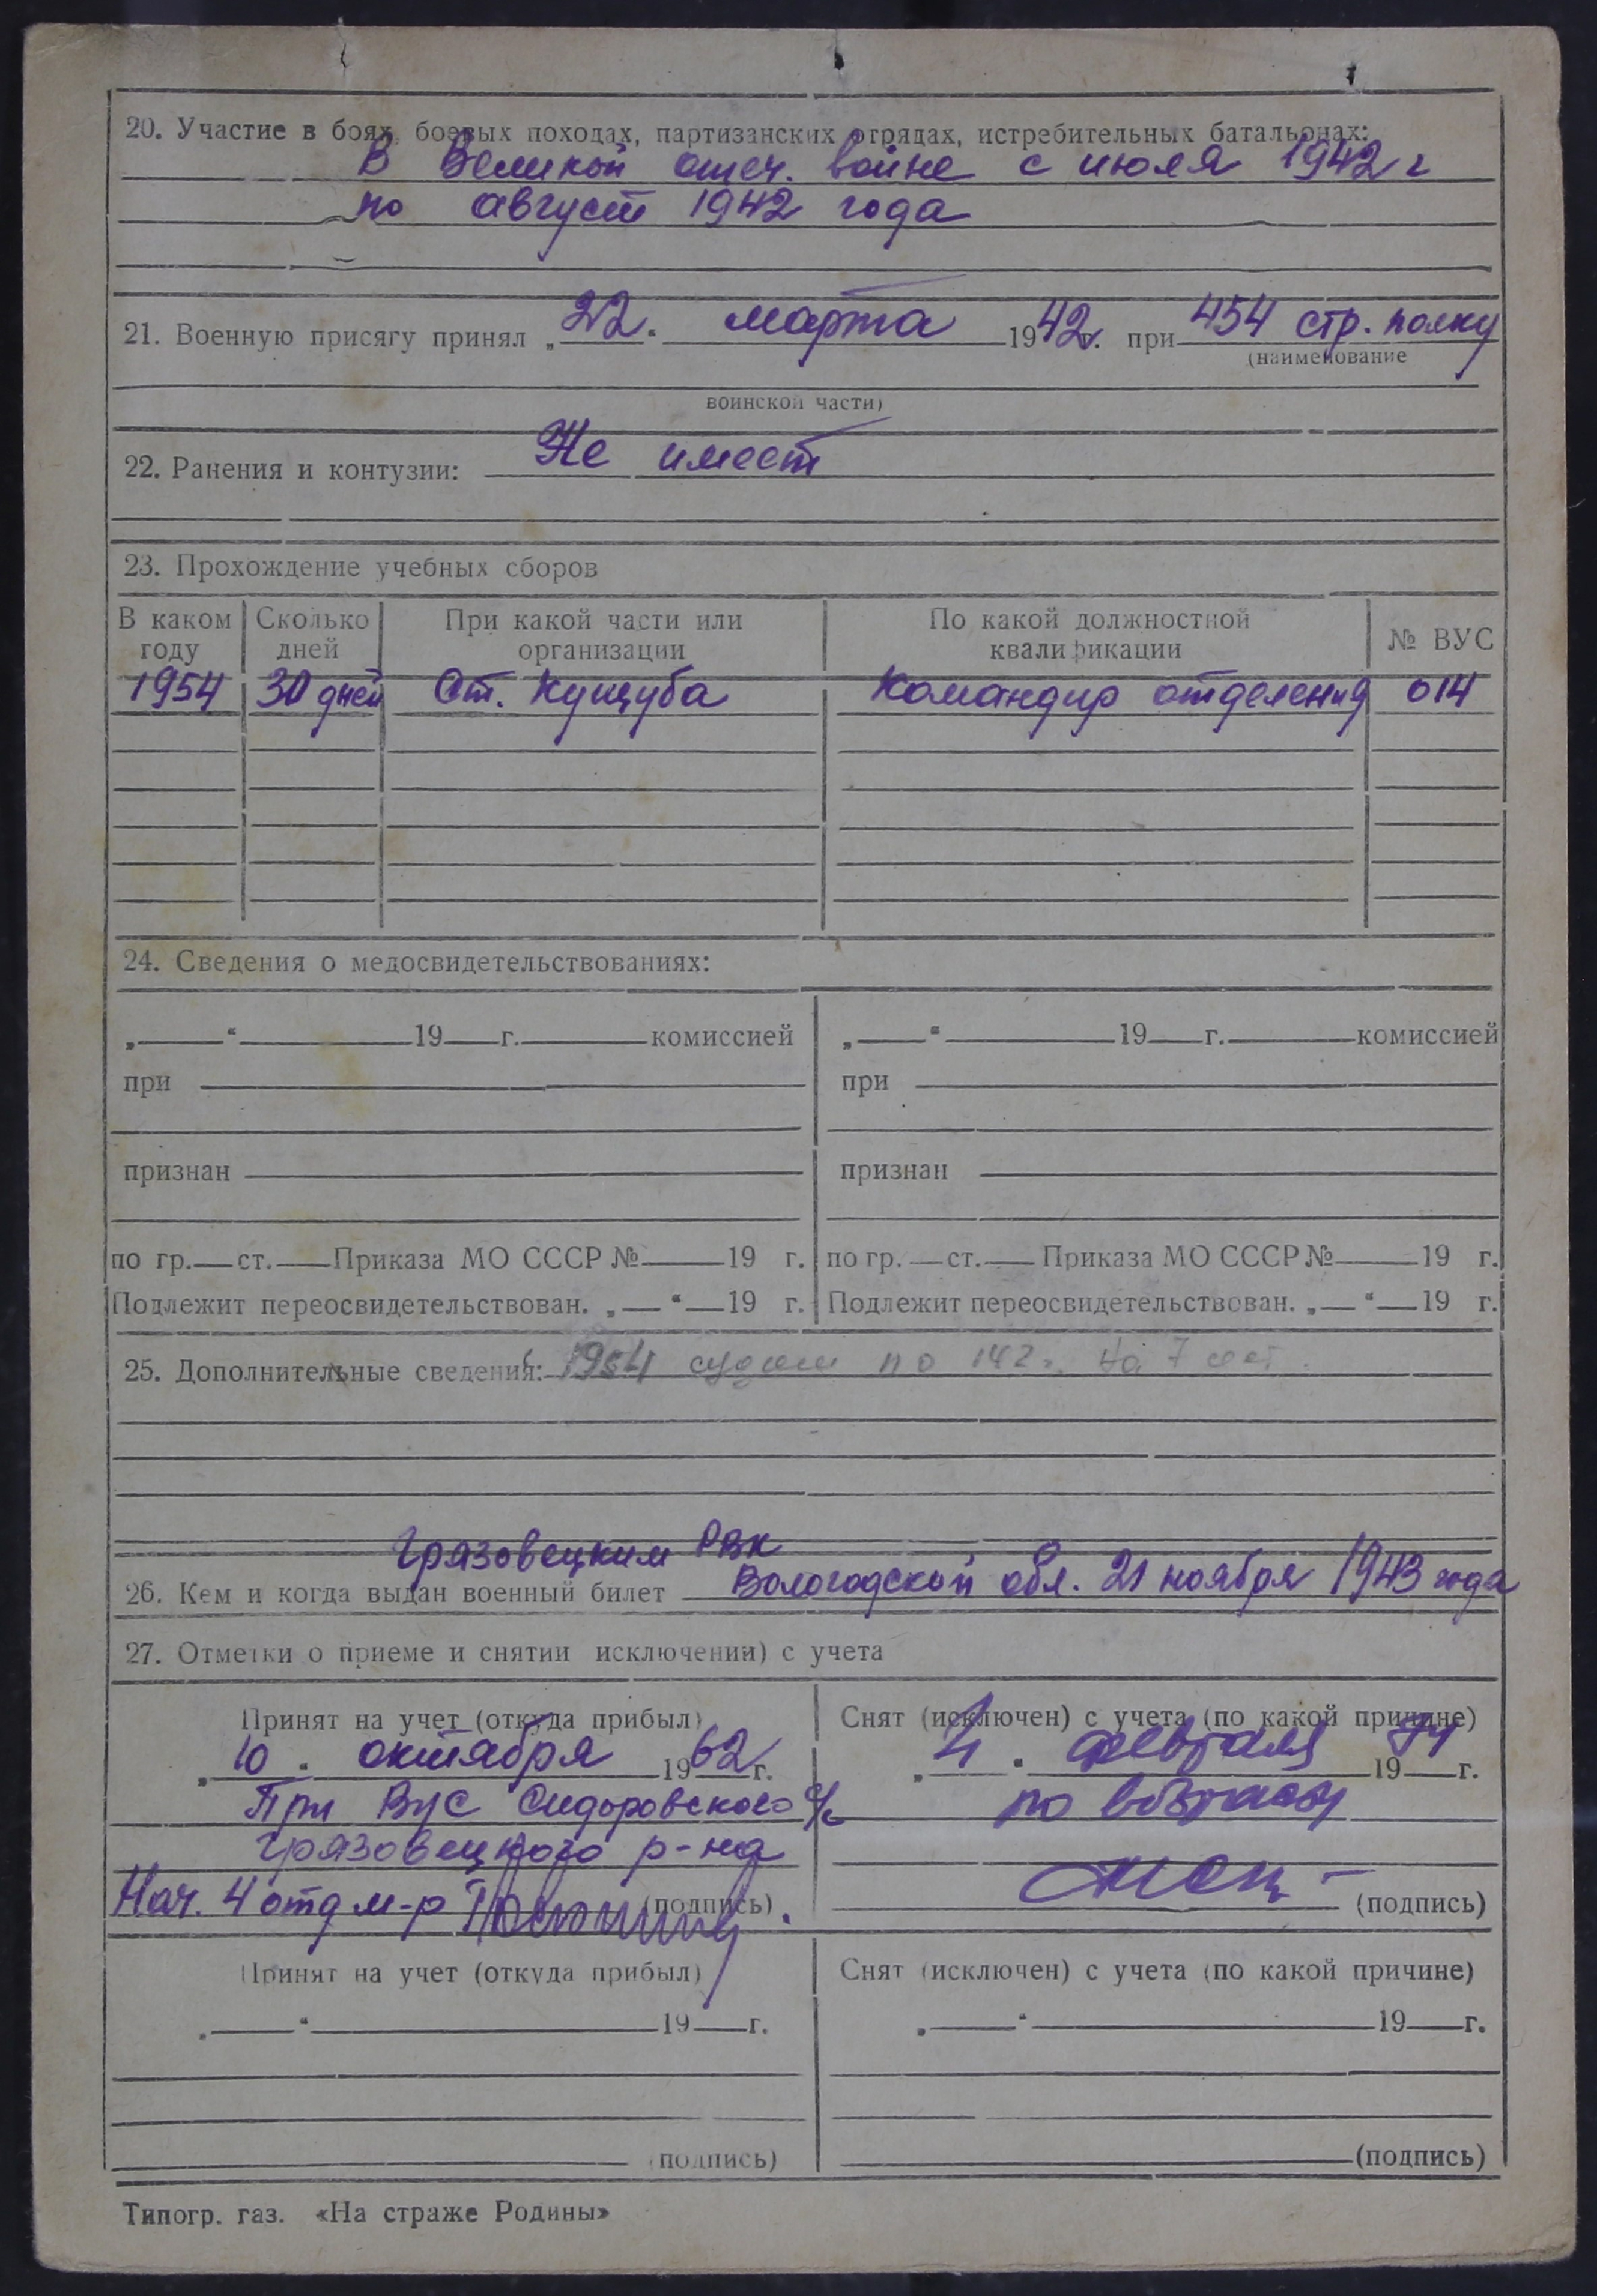 20. Участие в боях, боевых походах, партизанских отрядах, истребительных батальонах:
В Великой отеч. войне с июля 1942 г
по август 1942 года
21. Военную присягу принял „22“ марта 1942г. при 454 стр. полку
(наименование
воинской части)
22. Ранения и контузии: Не имеет
23. Прохождение учебных сборов
В каком году Сколько дней При какой части или организации По какой должностной квалификации № ВУС
1954 30 дней Ст. Кущуба Командир отделения 014
24. Сведения о медосвидетельствованиях:
„ “ 19 г. комиссией „ “ 19 г. комиссией
при при
признан признан
по гр. ст. Приказа МО СССР № 19 г. по гр. ст. Приказа МО СССР № 19 г.
Подлежит переосвидетельствован. „ “ 19 г. Подлежит переосвидетельствован. „ “ 19 г.
25. Дополнительные сведения: 1954 по 142 на 7 лет.
Грязовецким РВК
26. Кем и когда выдан военный билет Вологодской обл. 21 ноября 1943 года
27. Отметки о приеме и снятии исключении) с учета
Принят на учет (откуда прибыл)
„10“ октября 1962 г.
При ВУС Сидоровского с/с
Грязовецкого р-на
Нач. 4 отд м-р (подпись)
Снят (исключен) с учета (по какой причине)
„4“ февраля 1974 г.
по возрасту
(подпись)
Принят на учет (откуда прибыл)
„ “ 19 г.
(подпись)
Снят (исключен) с учета (по какой причине)
„ “ 19 г.
(подпись)
Типогр. газ. «На страже Родины»